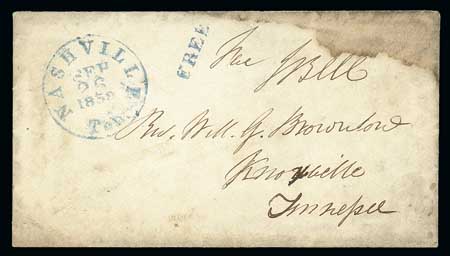 NASHVILLE
SEP
26
1858
Ten.
FREE
Free JBell
Rev. Will. G. Brownlow
Knoxville
Tennessee